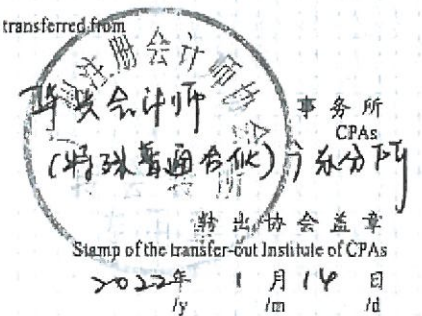 transferred from
华兴会计师 事务所
CPAs
(特殊普通合伙)广东分所
转出协会盖章
Stamp of the transfer-out Institute of CPAs
2022年 1月14日
/y /m /d